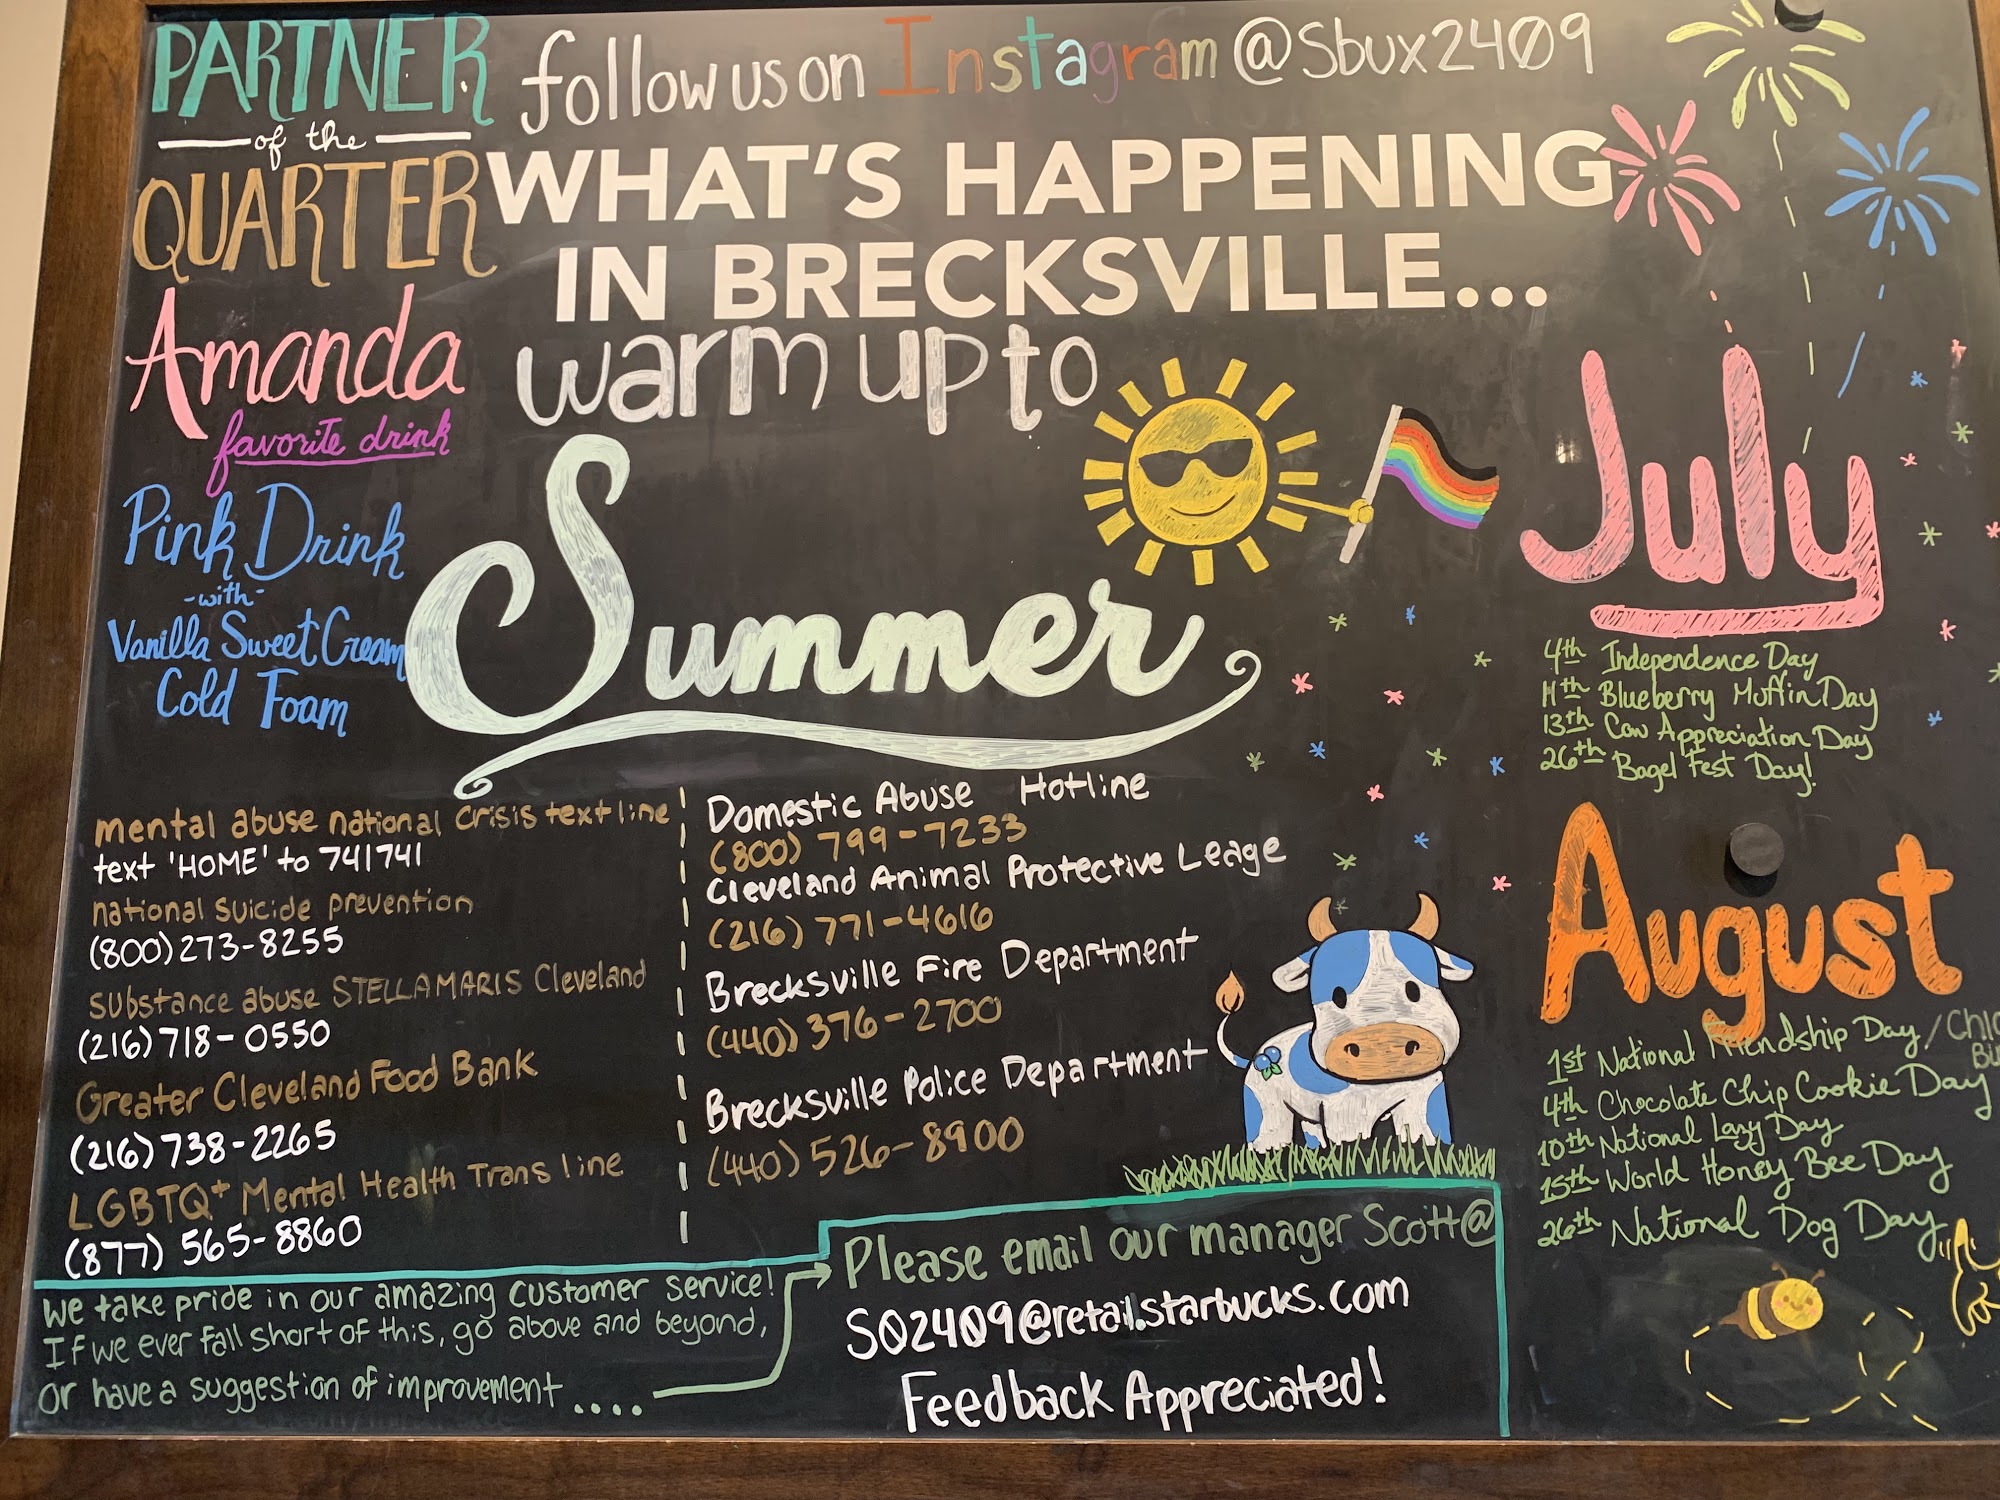 PARTNER
of the
QUARTER
Amanda
favorite drink
Pink Drink
-with-
Vanilla Sweet Cream
Cold Foam
follow us on Instagram @Sbux2409
WHAT'S HAPPENING
IN BRECKSVILLE...
warm up to
Summer
mental abuse national crisis text line
text 'HOME' to 741741
national suicide prevention
(800) 273-8255
substance abuse STELLA MARIS Cleveland
(216) 718-0550
Greater Cleveland Food Bank
(216) 738-2265
LGBTQ+ Mental Health Trans line
(877) 565-8860
Domestic Abuse Hotline
(800) 799-7233
Cleveland Animal Protective Leage
(216) 771-4616
Brecksville Fire Department
(440) 376-2700
Brecksville Police Department
(440) 526-8900
we take pride in our amazing customer service!
If we ever fall short of this, go above and beyond,
or have a suggestion of improvement ....
Please email our manager Scott@
S02409@retail.starbucks.com
Feedback Appreciated!
July
4th Independence Day
11th Blueberry Muffin Day
13th Cow Appreciation Day
26th Bagel Fest Day!
August
1st National Friendship Day /
4th Chocolate Chip Cookie Day
10th National Lazy Day
15th World Honey Bee Day
26th National Dog Day